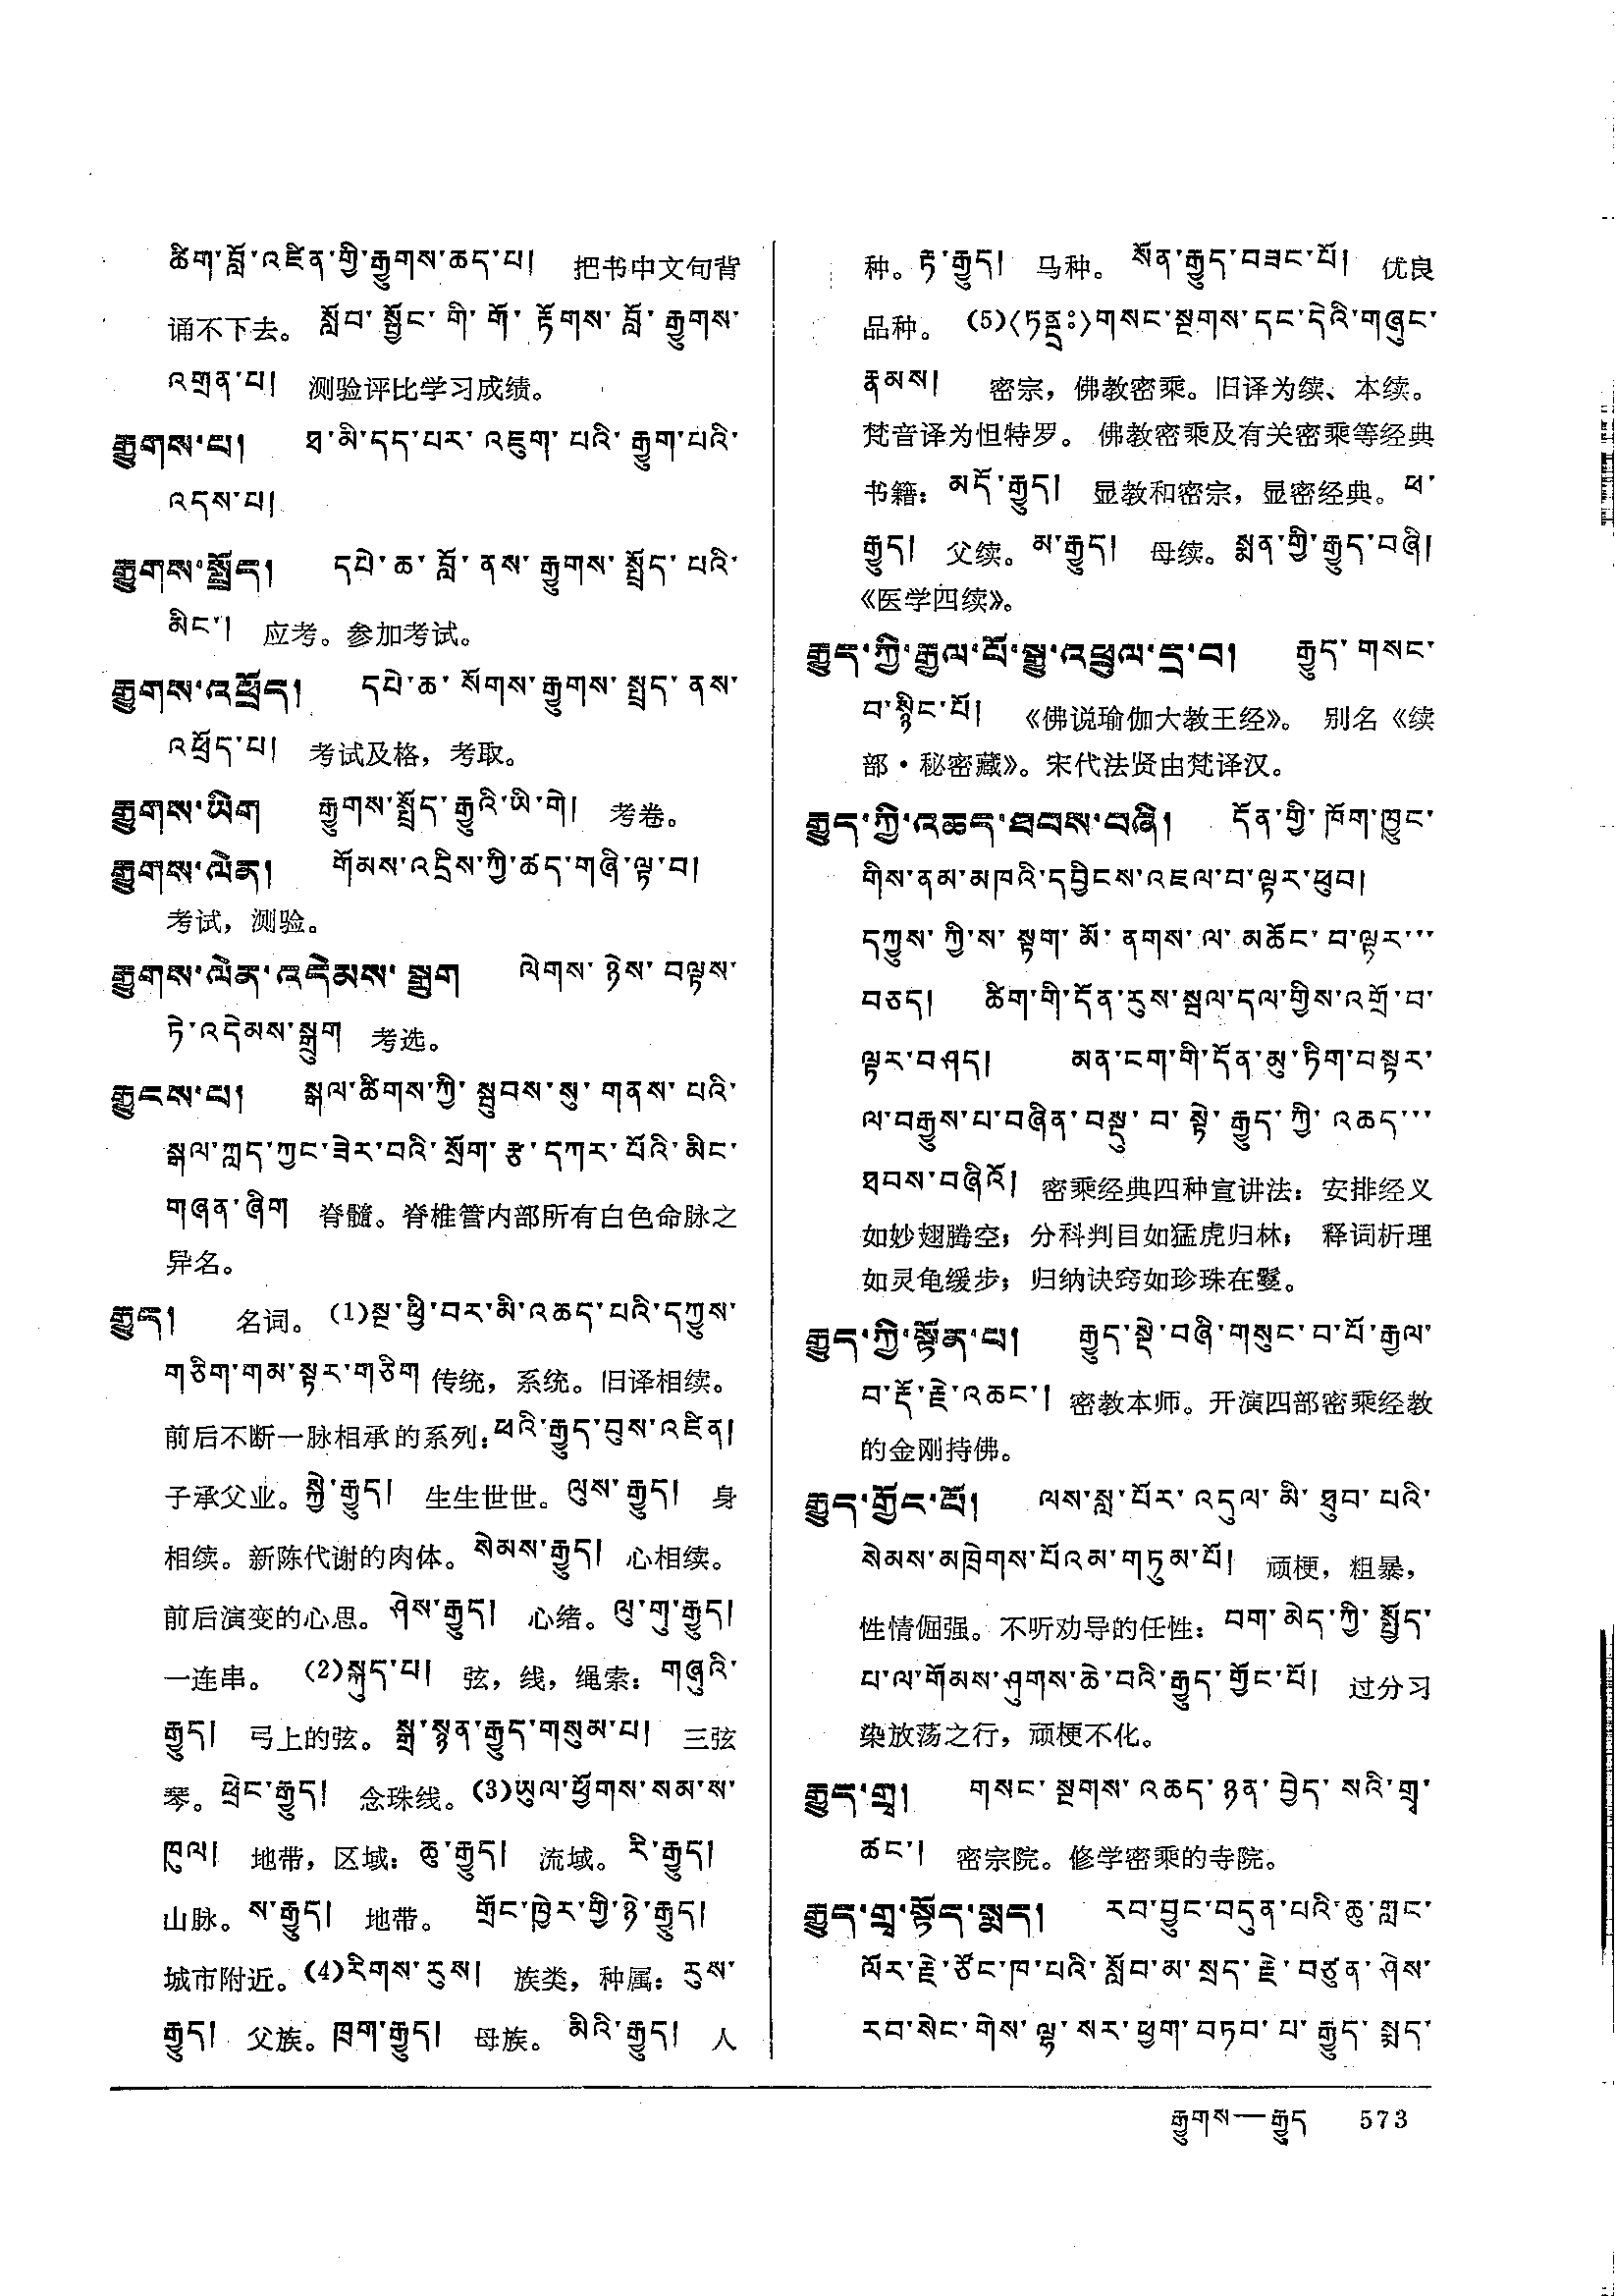 ཚིག་བློ་འཛིན་གྱི་རྒྱུགས་ཆད་པ། 把书中文句背
诵不下去。 སློབ་སྦྱོང་གི་གོ་རྟོགས་བློ་རྒྱུགས་
འགྲན་པ། 测验评比学习成绩。
རྒྱུགས་པ། ཐ་མི་དད་པར་འཇུག་པའི་རྒྱུག་པའི་
འདས་པ།
རྒྱུགས་སྤྲོད། དཔེ་ཆ་བློ་ནས་རྒྱུགས་སྤྲོད་པའི་
མིང་། 应考。参加考试。
རྒྱུགས་འཕྲོད། དཔེ་ཆ་སོགས་རྒྱུགས་སྤྲད་ནས་
འཕྲོད་པ། 考试及格，考取。
རྒྱུགས་ཡིག རྒྱུགས་སྤྲོད་རྒྱུའི་ཡི་གེ། 考卷。
རྒྱུགས་ལེན། གོམས་འདྲིས་ཀྱི་ཚད་གཞི་ལྟ་བ།
考试，测验。
རྒྱུགས་ལེན་འདེམས་སྒྲུག ལེགས་ཉེས་བལྟས་
ཏེ་འདེམས་སྒྲུག 考选。
རྒྱུངས་པ། སྒལ་ཚིགས་ཀྱི་སྦུབས་སུ་གནས་པའི་
སྒལ་ཀླད་ཀྱང་ཟེར་བའི་སྲོག་རྩ་དཀར་པོའི་མིང་
གཞན་ཞིག 脊髓。脊椎管内部所有白色命脉之
异名。
རྒྱུད། 名词。(1)སྔ་ཕྱི་བར་མི་འཆད་པའི་དཀྱུས་
གཅིག་གམ་སྟར་གཅིག 传统，系统。旧译相续。
前后不断一脉相承的系列：ཕའི་རྒྱུད་བུས་འཛིན།
子承父业。སྐྱེ་རྒྱུད། 生生世世。ལུས་རྒྱུད། 身
相续。新陈代谢的肉体。སེམས་རྒྱུད། 心相续。
前后演变的心思。ཤེས་རྒྱུད། 心绪。ལུ་གུ་རྒྱུད།
一连串。 (2)སྐུད་པ། 弦，线，绳索：གཞུའི་
རྒྱུད། 弓上的弦。སྒྲ་སྙན་རྒྱུད་གསུམ་པ། 三弦
琴。ཕྲེང་རྒྱུད། 念珠线。(3)ཡུལ་ཕྱོགས་སམ་ས་
ཁུལ། 地带，区域：ཆུ་རྒྱུད། 流域。རི་རྒྱུད།
山脉。ས་རྒྱུད། 地带。 གྲོང་ཁྱེར་གྱི་ཉེ་རྒྱུད།
城市附近。(4)རིགས་རུས། 族类，种属：རུས་
རྒྱུད། 父族。ཁྲག་རྒྱུད། 母族。མིའི་རྒྱུད། 人
种。རྟ་རྒྱུད། 马种。 སོན་རྒྱུད་བཟང་པོ། 优良
品种。 (5)〈ཏནྟྲཿ〉གསང་སྔགས་དང་དེའི་གཞུང་
རྣམས། 密宗，佛教密乘。旧译为续、本续。
梵音译为怛特罗。 佛教密乘及有关密乘等经典
书籍：མདོ་རྒྱུད། 显教和密宗，显密经典。ཕ་
རྒྱུད། 父续。མ་རྒྱུད། 母续。སྨན་གྱི་རྒྱུད་བཞི།
《医学四续》。
རྒྱུད་ཀྱི་རྒྱལ་པོ་སྒྱུ་འཕྲུལ་དྲ་བ། རྒྱུད་གསང་
བ་སྙིང་པོ། 《佛说瑜伽大教王经》。 别名《续
部·秘密藏》。宋代法贤由梵译汉。
རྒྱུད་ཀྱི་འཆད་ཐབས་བཞི། དོན་གྱི་ཁོག་ཁྱུང་
གིས་ནམ་མཁའི་དབྱིངས་འཇལ་བ་ལྟར་ཕུབ།
དཀྱུས་ཀྱི་ས་སྟག་མོ་ནགས་ལ་མཆོང་བ་ལྟར་་་
བཅད། ཚིག་གི་དོན་རུས་སྦལ་དལ་གྱིས་འགྲོ་བ་
ལྟར་བཤད། མན་ངག་གི་དོན་མུ་ཏིག་བསྟར་
ལ་བརྒྱུས་པ་བཞིན་བསྡུ་བ་སྟེ་རྒྱུད་ཀྱི་འཆད་་་
ཐབས་བཞིའོ། 密乘经典四种宣讲法：安排经义
如妙翅腾空；分科判目如猛虎归林； 释词析理
如灵龟缓步；归纳诀窍如珍珠在鬘。
རྒྱུད་ཀྱི་སྟོན་པ། རྒྱུད་སྡེ་བཞི་གསུང་བ་པོ་རྒྱལ་
བ་རྡོ་རྗེ་འཆང་། 密教本师。开演四部密乘经教
的金刚持佛。
རྒྱུད་གྱོང་པོ། ལས་སླ་པོར་འདུལ་མི་ཐུབ་པའི་
སེམས་མཁྲེགས་པོའམ་གཏུམ་པོ། 顽梗，粗暴，
性情倔强。不听劝导的任性：བག་མེད་ཀྱི་སྤྱོད་
པ་ལ་གོམས་ཤུགས་ཆེ་བའི་རྒྱུད་གྱོང་པོ། 过分习
染放荡之行，顽梗不化。
རྒྱུད་གྲྭ། གསང་སྔགས་འཆད་ཉན་བྱེད་སའི་གྲྭ་
ཚང་། 密宗院。修学密乘的寺院。
རྒྱུད་གྲྭ་སྟོད་སྨད། རབ་བྱུང་བདུན་པའི་ཆུ་གླང་
ལོར་རྗེ་ཙོང་ཁ་པའི་སློབ་མ་སྲད་རྗེ་བཙུན་ཤེས་
རབ་སེང་གེས་ལྷ་སར་ཕྱག་བཏབ་པ་རྒྱུད་སྨད་
རྒྱུགས—རྒྱུད 573